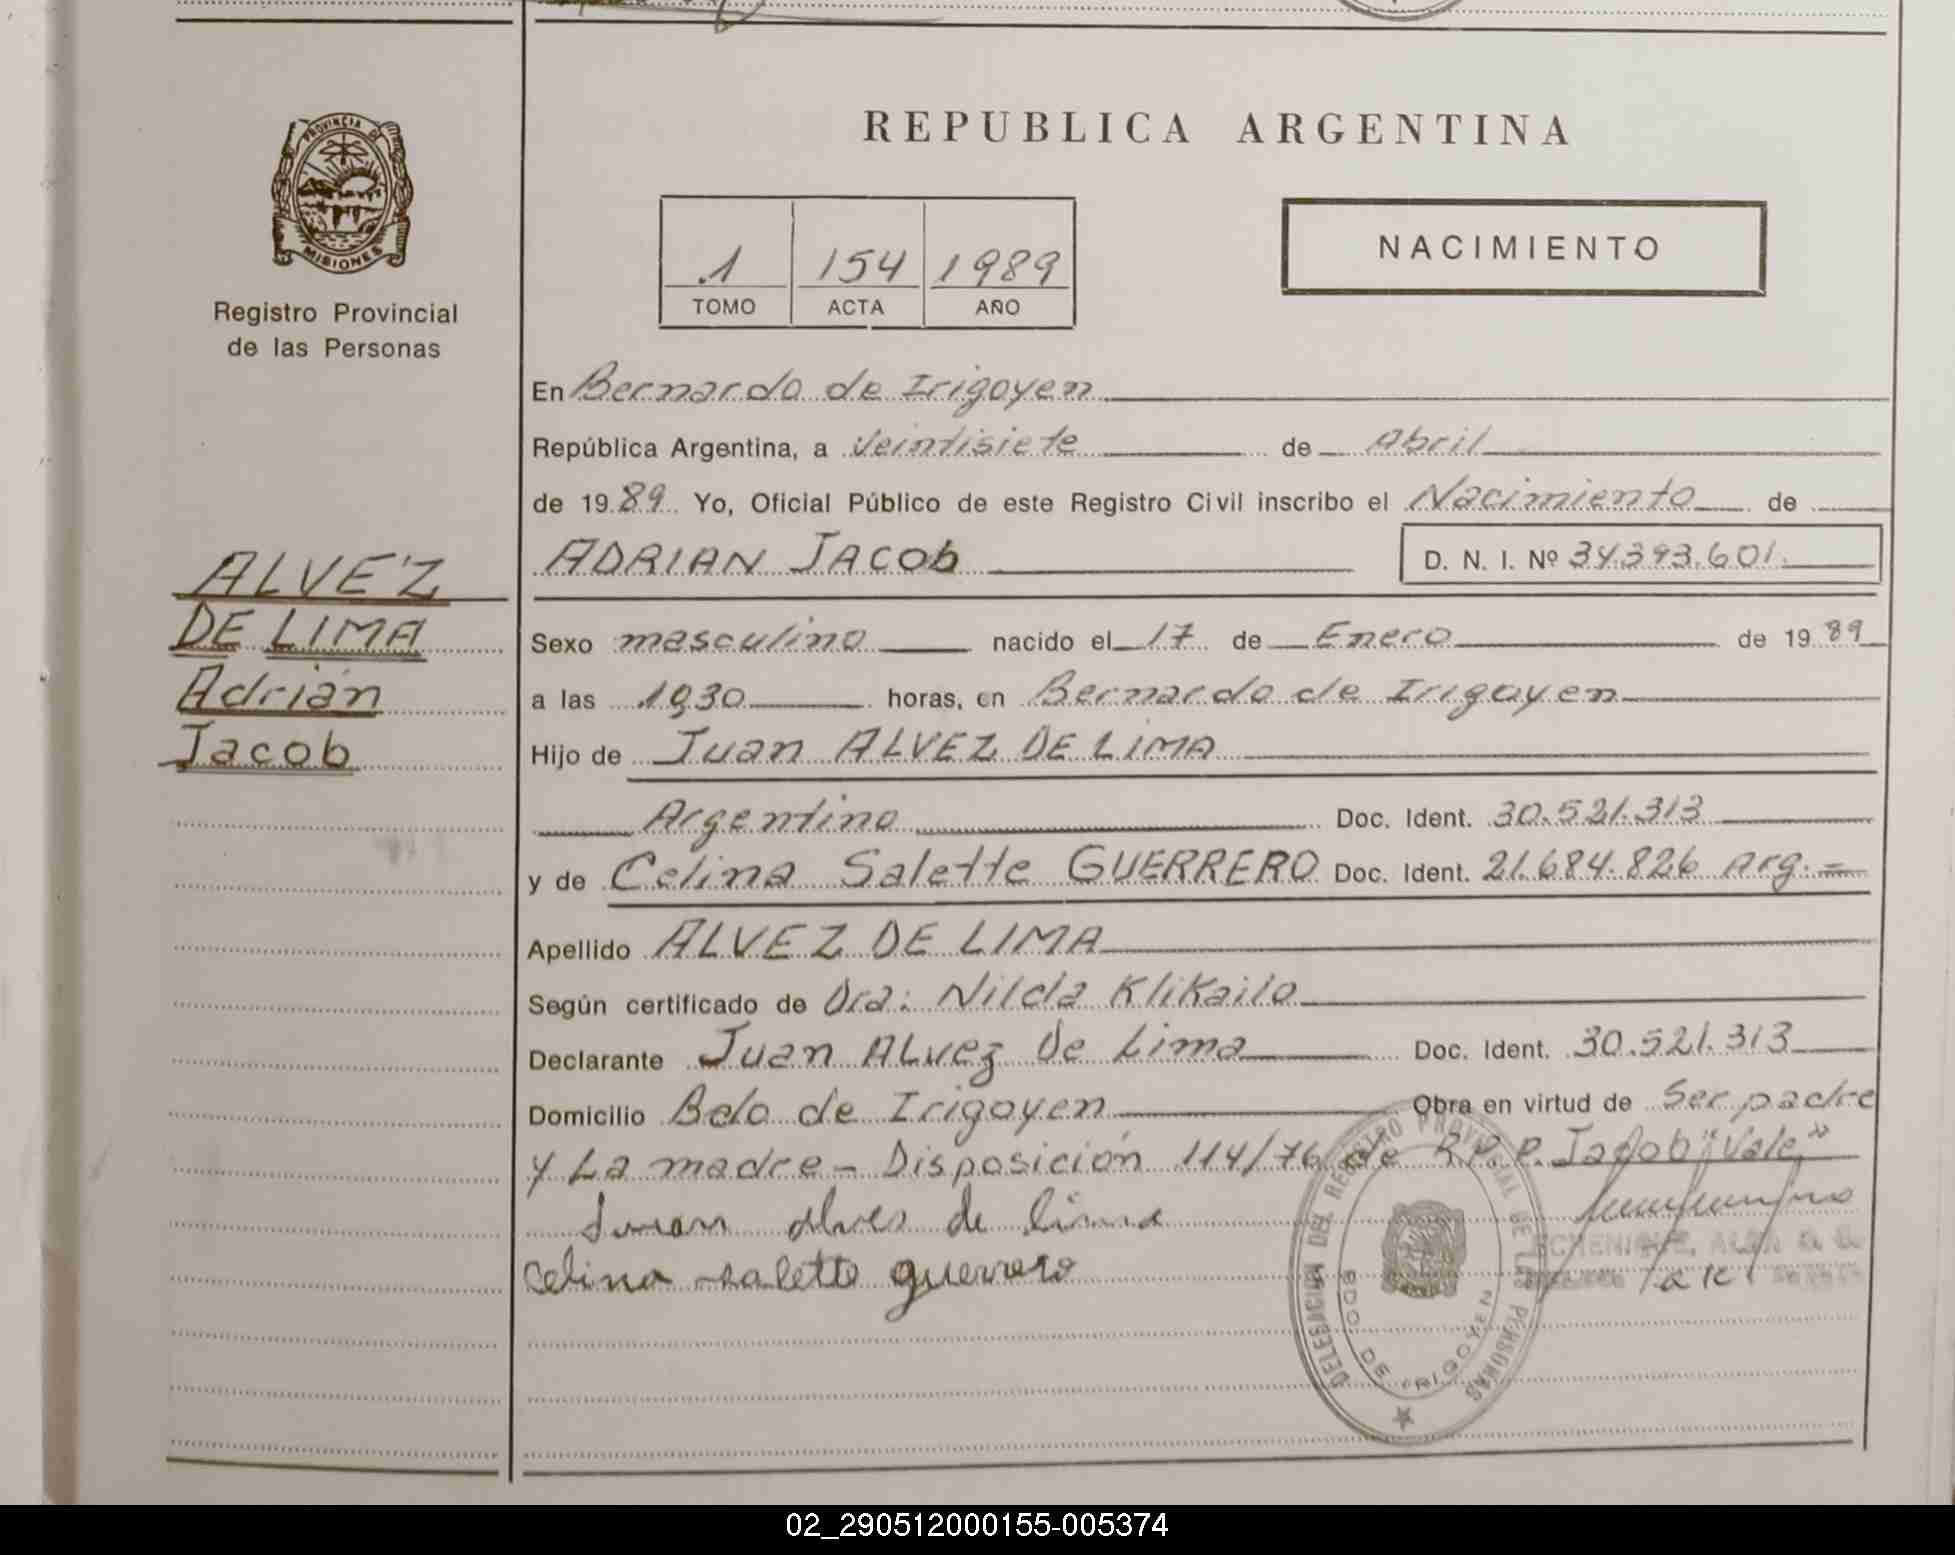 PROVINCIA D
MISIONES
Registro Provincial
de las Personas
ALVEZ
DE LIMA
Adrián
Jacob
REPUBLICA ARGENTINA
1 154 1989
TOMO ACTA AÑO
NACIMIENTO
En Bernardo de Irigoyen
República Argentina, a Veintisiete de Abril
de 1989 Yo, Oficial Público de este Registro Civil inscribo el Nacimiento de
ADRIAN JACOb D. N. I. Nº 34.393.601.
Sexo masculino nacido el 17 de Enero de 1989
a las 19,30 horas, en Bernardo de Irigoyen
Hijo de Juan ALVEZ DE LIMA
Argentino Doc. Ident. 30.521.313
y de Celina Salette GUERRERO Doc. Ident. 21.684.826 Arg.=
Apellido ALVEZ DE LIMA
Según certificado de Dra: Nilda Klikailo
Declarante Juan ALvez De Lima Doc. Ident. 30.521.313
Domicilio Bdo de Irigoyen Obra en virtud de Ser padre
y La madre - Disposición 114/76 de R.P.P. Jacob "Vale"
Juan Alves de lima
Celina salette guerrero
DELEGACION DEL REGISTRO PROVINCIAL DE LAS PERSONAS
BDO DE IRIGOYEN
02_290512000155-005374